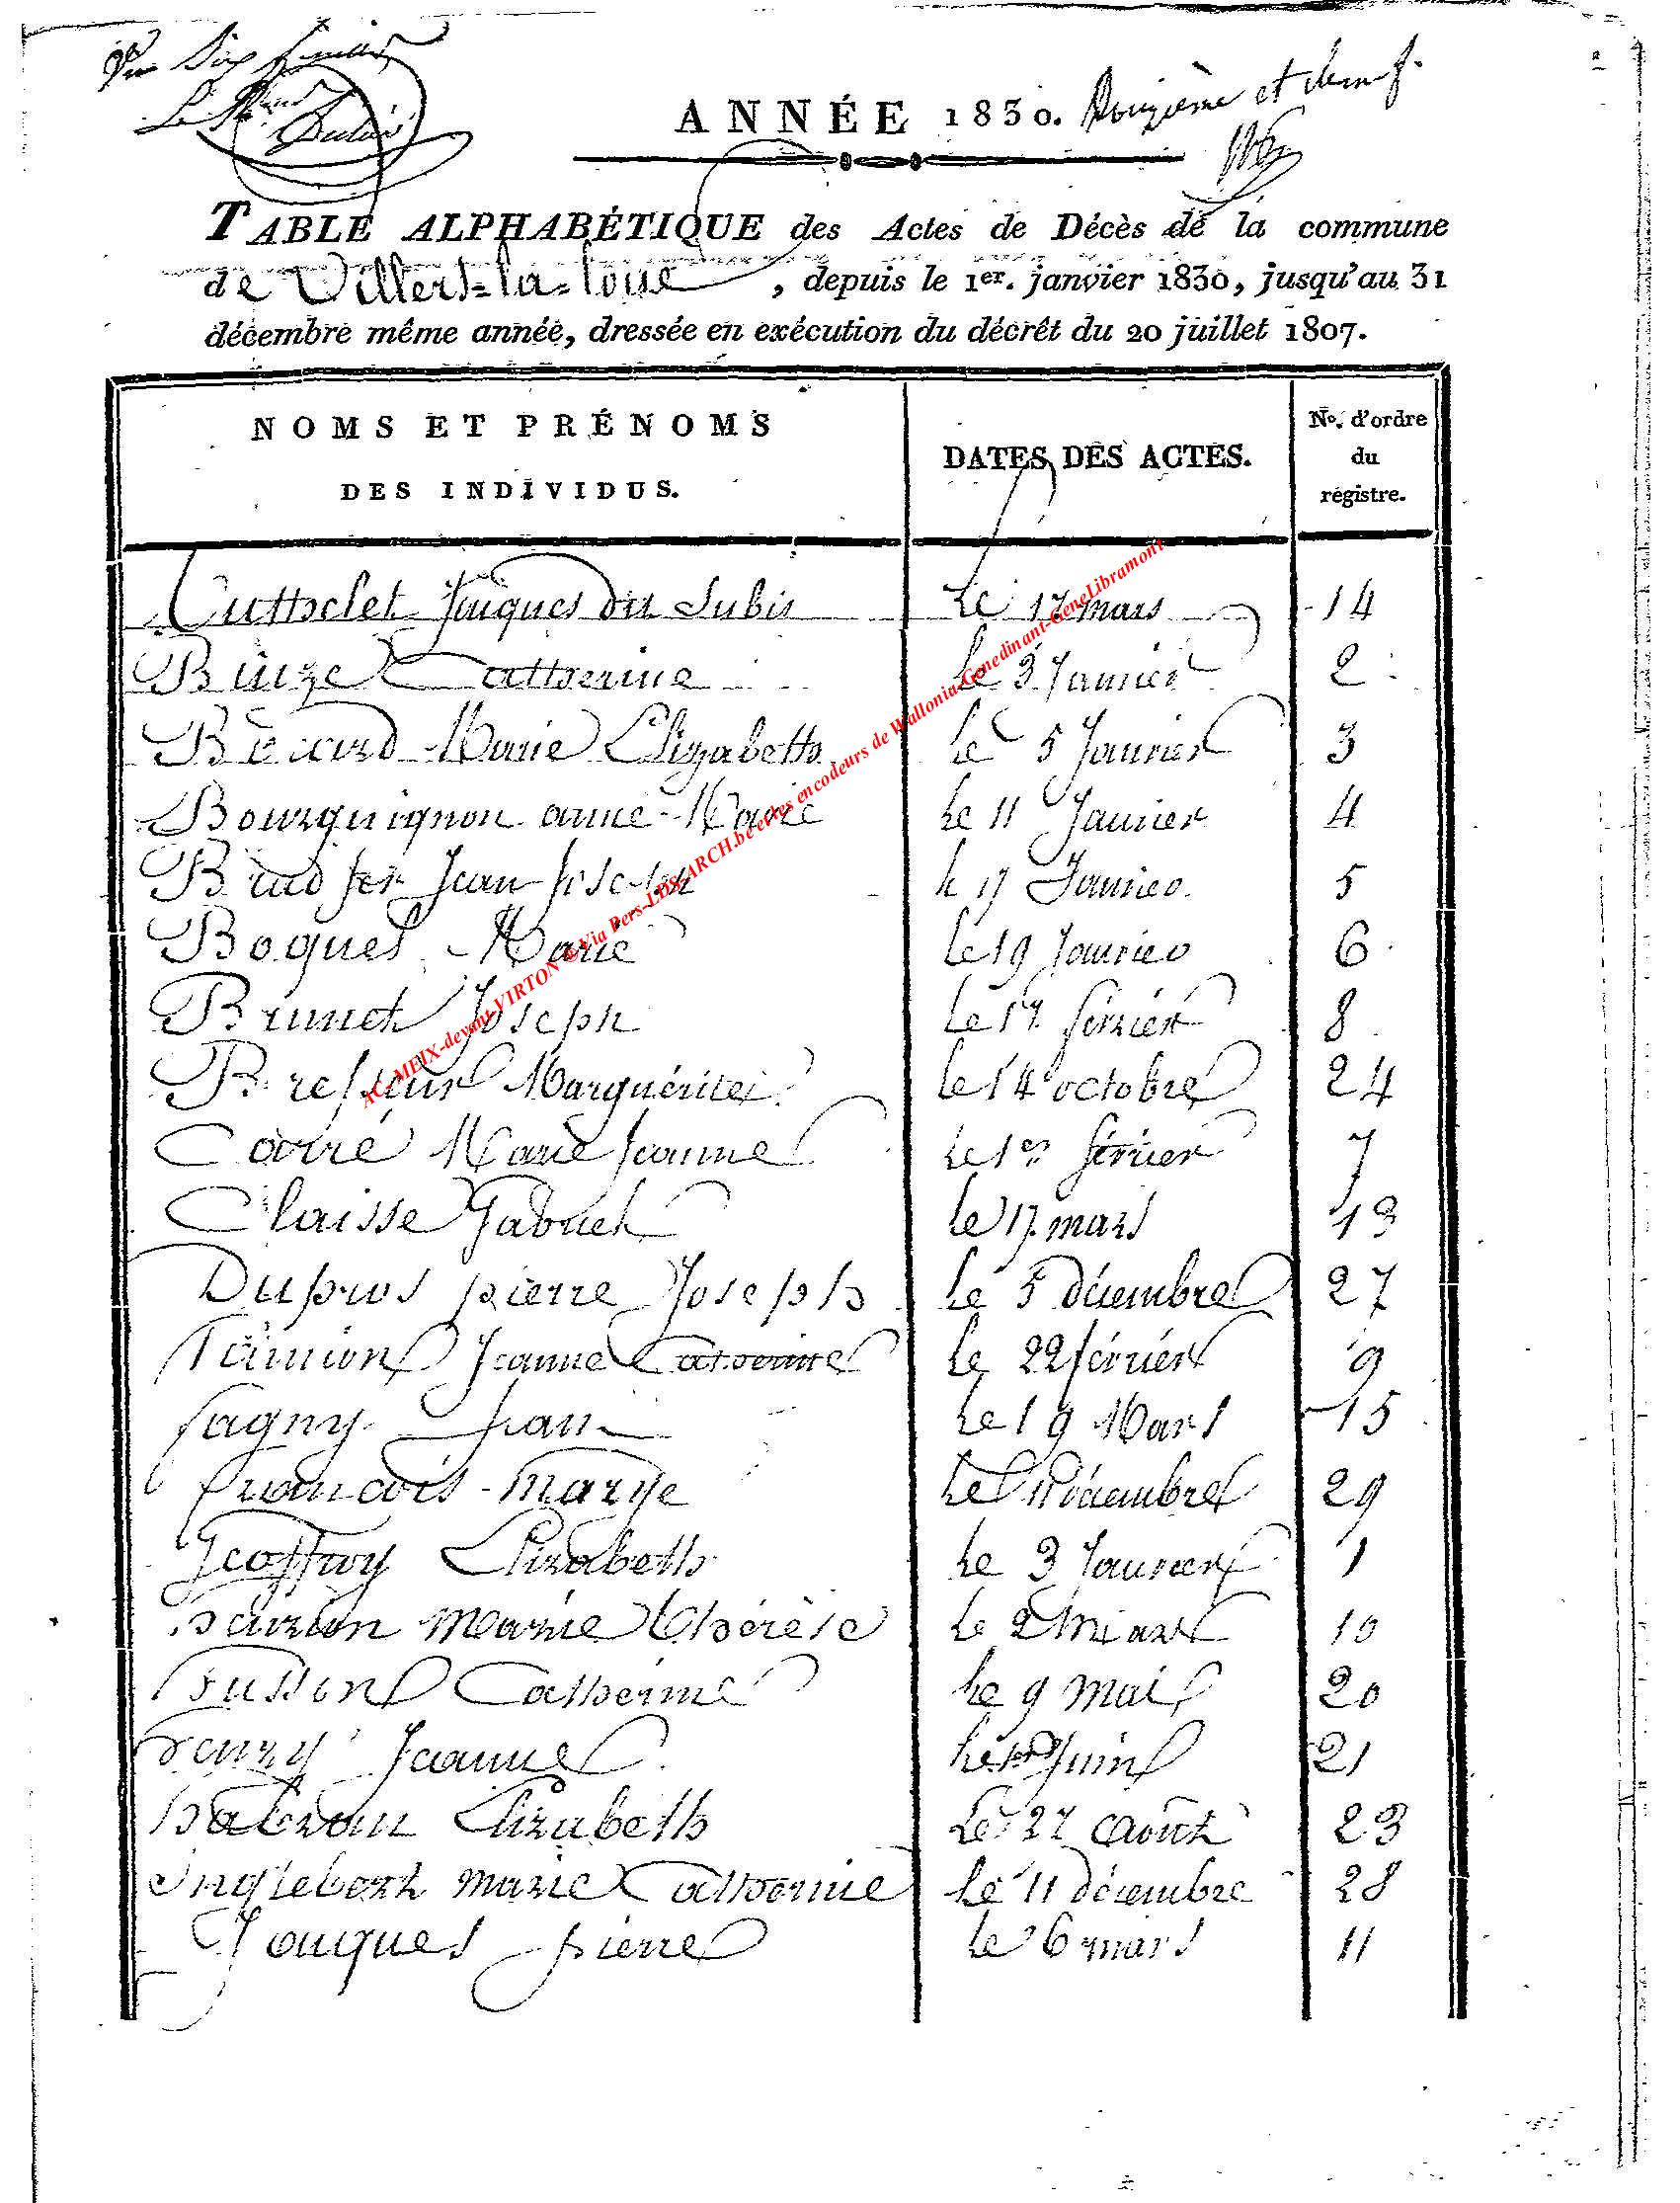 ANNÉE 1830. Douzième et dernf.
TABLE ALPHABÉTIQUE des Actes de Décès de la commune
de Villers-la-loue, depuis le 1er. janvier 1830, jusqu'au 31
décembre même année, dressée en exécution du décrêt du 20 juillet 1807.
NOMS ET PRÉNOMS
DES INDIVIDUS.
DATES DES ACTES.
No. d'ordre
du
régistre.
Jaques Le 17 mars 14
Catherine le 3 Janvier 2
Marie Elizabeth le 5 Janvier 3
Bourguignon anne-Marie le 11 Janvier 4
Jean Joseph le 17 Janvier 5
Boques Marie le 19 Janvier 6
Brunet Joseph le 17 février 8
Marguérite le 14 octobre 24
Carré Marie Jeanne le 1er février 7
Claisse Gabriel le 17 mars 13
Dupros pierre Joseph le 5 décembre 27
Jeanne Catherine le 22 février 9
fagny Jean le 19 Mars 15
françois marye Le 11 décembre 29
Geoffroy Elizabeth le 3 Janvier 1
marie thérèse le 2 mars 10
husson Catherine le 9 mai 20
henry Jeanne le 1er Juin 21
Elizabeth Le 27 août 23
Inglebert marie Catherine le 11 décembre 28
Jouques pierre le 6 mars 11
AC-MEIX-devant-VIRTON & Via Pers-LDS-ARCH.be et les encodeurs de Wallonia-Genedinant-GeneLibramont